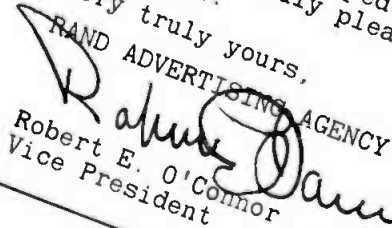 truly yours,
RAND ADVERTISING AGENCY
Robert E. O'Connor
Vice President